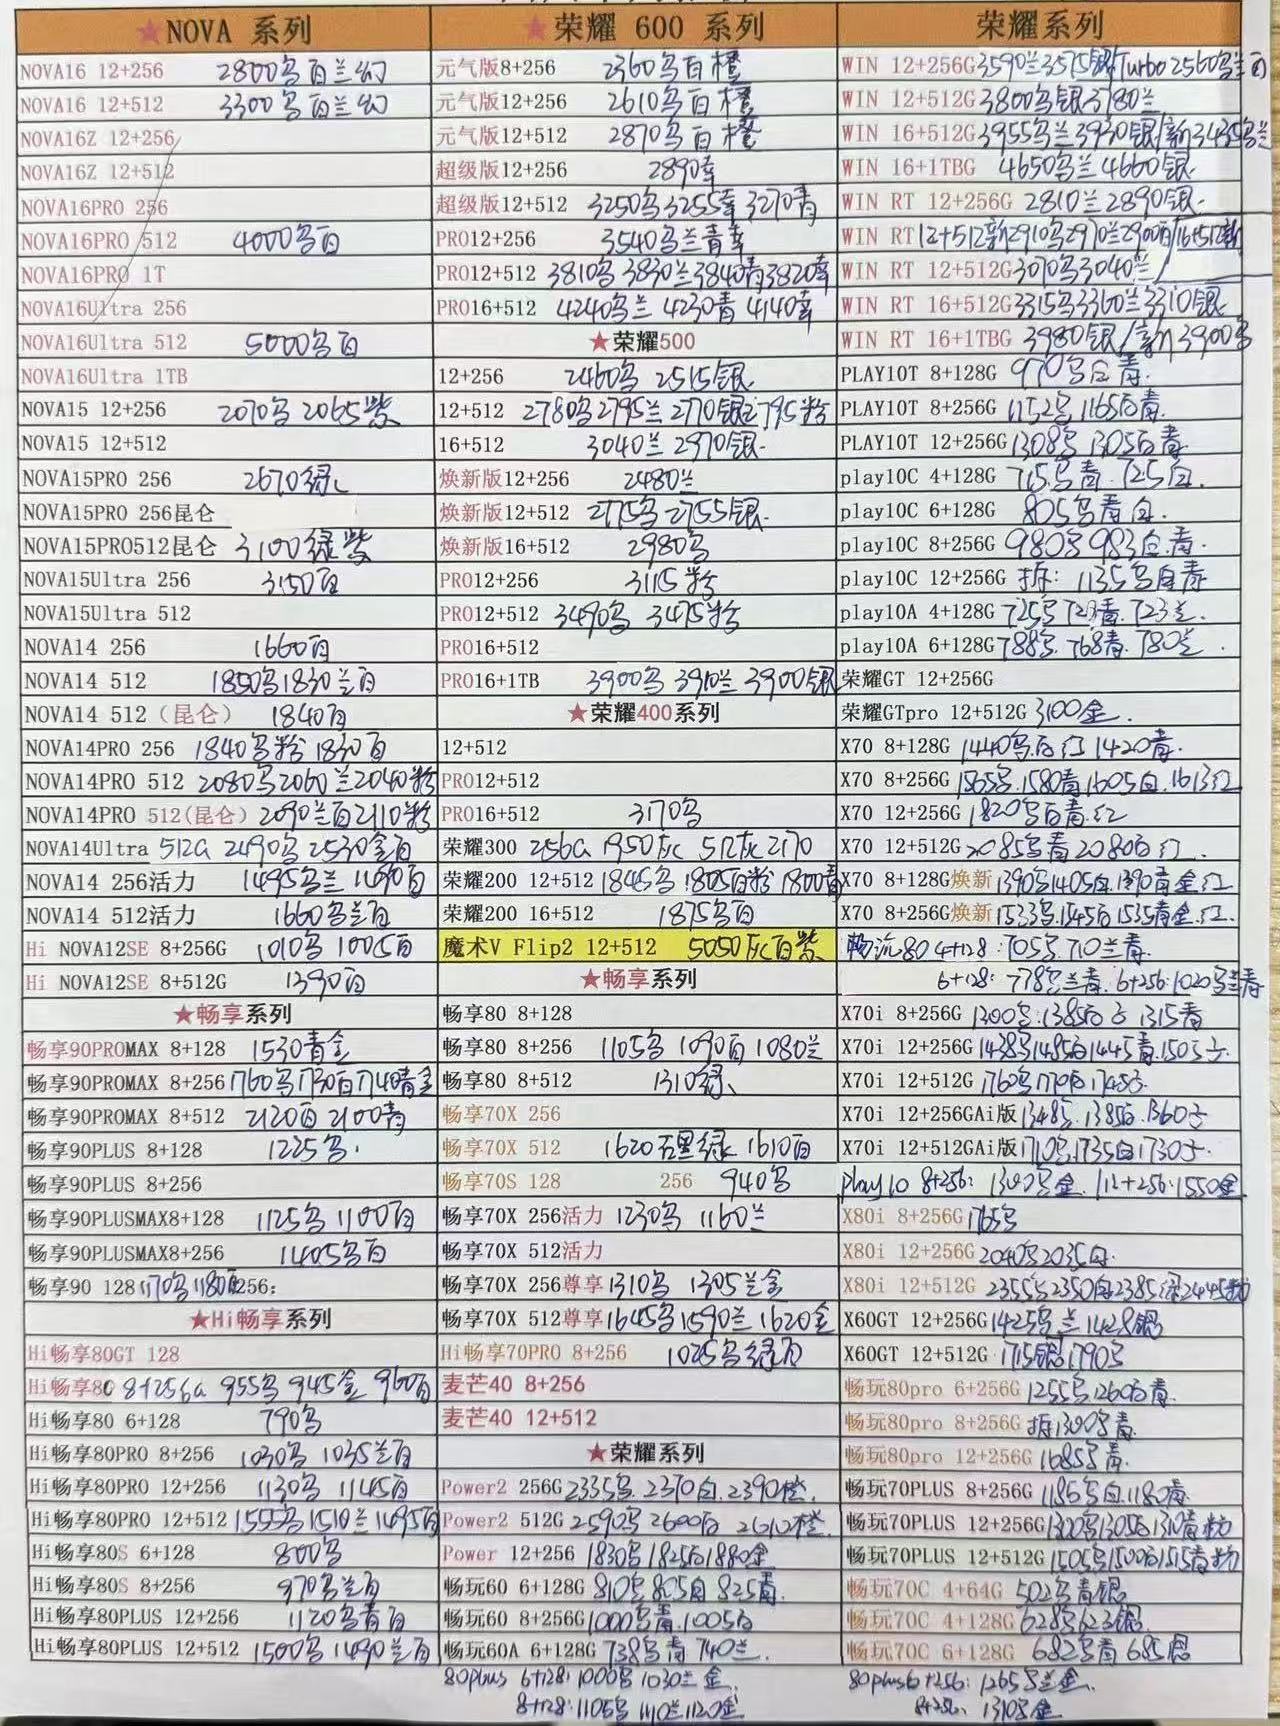 ★NOVA 系列
NOVA16 12+256 2800乌白兰幻
NOVA16 12+512 3300乌白兰幻
NOVA16Z 12+256
NOVA16Z 12+512
NOVA16PRO 256
NOVA16PRO 512 4000乌白
NOVA16PRO 1T
NOVA16Ultra 256
NOVA16Ultra 512 5000乌白
NOVA16Ultra 1TB
NOVA15 12+256 2070乌 2065紫
NOVA15 12+512
NOVA15PRO 256 2670绿
NOVA15PRO 256昆仑
NOVA15PRO512昆仑 3100绿紫
NOVA15Ultra 256 3150白
NOVA15Ultra 512
NOVA14 256 1660白
NOVA14 512 1850乌1830兰白
NOVA14 512（昆仑） 1840白
NOVA14PRO 256 1840乌粉 1830白
NOVA14PRO 512 2080乌2060兰2040粉
NOVA14PRO 512(昆仑) 2090兰白2110粉
NOVA14Ultra 512G 2490乌 2530金白
NOVA14 256活力 1495乌兰 1490白
NOVA14 512活力 1660乌兰白
Hi NOVA12SE 8+256G 1010乌 1005白
Hi NOVA12SE 8+512G 1390白
★畅享系列
畅享90PROMAX 8+128 1530青金
畅享90PROMAX 8+256 1760乌1730白1740青金
畅享90PROMAX 8+512 2120白 2100青
畅享90PLUS 8+128 1225乌.
畅享90PLUS 8+256
畅享90PLUSMAX8+128 1125乌 1100白
畅享90PLUSMAX8+256 1405乌白
畅享90 128 1170乌1180白256:
★Hi畅享系列
Hi畅享80GT 128
Hi畅享80 8+256G 955乌 945金 960白
Hi畅享80 6+128 790乌
Hi畅享80PRO 8+256 1030乌 1035兰白
Hi畅享80PRO 12+256 1130乌 1145白
Hi畅享80PRO 12+512 1555乌1510兰1495白
Hi畅享80S 6+128 800乌
Hi畅享80S 8+256 970乌兰白
Hi畅享80PLUS 12+256 1120乌青白
Hi畅享80PLUS 12+512 1500乌 1490兰白
★荣耀 600 系列
元气版8+256 2360乌白橙
元气版12+256 2610乌白橙
元气版12+512 2870乌白橙
超级版12+256 2890幸
超级版12+512 3250乌3255幸 3270青
PRO12+256 3540乌兰青幸
PRO12+512 3810乌 3830兰3840青3820幸
PRO16+512 4240乌兰 4230青 4140幸
★荣耀500
12+256 2460乌 2515银
12+512 2780乌2795兰 2770银2795粉
16+512 3040兰 2970银.
焕新版12+256 2480兰
焕新版12+512 2775乌 2755银.
焕新版16+512 2980乌
PRO12+256 3115粉
PRO12+512 3490乌 3475粉
PRO16+512
PRO16+1TB 3900乌 3910兰 3900银
★荣耀400系列
12+512
PRO12+512
PRO16+512 3170乌
荣耀300 256G 1950灰 512灰2170
荣耀200 12+512 1845乌 1805白粉 1800青
荣耀200 16+512 1875乌白
魔术V Flip2 12+512 5050灰白紫
★畅享系列
畅享80 8+128
畅享80 8+256 1105乌 1090白 1080兰
畅享80 8+512 1310绿
畅享70X 256
畅享70X 512 1620黑绿 1610白
畅享70S 128 256 940乌
畅享70X 256活力 1230乌 1160兰
畅享70X 512活力
畅享70X 256尊享 1310乌 1305兰金
畅享70X 512尊享 1645乌1590兰 1620金
Hi畅享70PRO 8+256 1025乌绿白
麦芒40 8+256
麦芒40 12+512
★荣耀系列
Power2 256G 2335乌. 2370白. 2390橙.
Power2 512G 2590乌 2600白 2610橙.
Power 12+256 1830乌 1825白1880金
畅玩60 6+128G 810乌 805白 825青.
畅玩60 8+256G 1000乌青.1005白
畅玩60A 6+128G 738乌青 740兰.
80plus 6+128: 1000乌 1030兰金.
8+128: 1105乌 1110兰1120金
荣耀系列
WIN 12+256G 3590兰3575银 Turbo2560乌兰白
WIN 12+512G 3800乌银3780兰
WIN 16+512G 3955乌兰 3930银/新3435乌兰
WIN 16+1TBG 4650乌兰 4660银.
WIN RT 12+256G 2810兰2890银.
WIN RT 12+512新2910乌2970兰2900白/16+512新
WIN RT 12+512G 3070乌3040兰
WIN RT 16+512G 3315乌3360兰3310银
WIN RT 16+1TBG 3980银/新3900乌
PLAY10T 8+128G 970乌白青.
PLAY10T 8+256G 1152乌 1165白青.
PLAY10T 12+256G 1308乌 1305白青.
play10C 4+128G 715乌青. 725白.
play10C 6+128G 805乌青白.
play10C 8+256G 980乌 983白.青.
play10C 12+256G 拆: 1135乌白青
play10A 4+128G 725乌 728青. 723兰.
play10A 6+128G 788乌. 768青. 780兰.
荣耀GT 12+256G
荣耀GTpro 12+512G 3100金.
X70 8+128G 1440乌白红 1420青.
X70 8+256G 1565乌.1580青1605白.1613红
X70 12+256G 1820乌白青.红
X70 12+512G 2085乌青 2080白红.
X70 8+128G焕新 1390乌1405白.1390青金.红
X70 8+256G焕新 1533乌.1545白1535青金.红.
畅玩80 4+128: 705乌 710兰青.
6+128: 778乌兰青. 6+256: 1020乌兰青
X70i 8+256G 1300乌.1385白 1315青
X70i 12+256G 1438乌1485白1445青.1505
X70i 12+512G 1760乌1770白1745
X70i 12+256GAi版 1348乌. 1385白. 1360
X70i 12+512GAi版 1710乌.1735白1730
play10 8+256: 1300乌金. 12+256: 1550金
X80i 8+256G 1765乌
X80i 12+256G 2040乌2035白.
X80i 12+512G 2355乌2350白2385 2445粉
X60GT 12+256G 1425乌兰 1428银
X60GT 12+512G 1715银1790乌
畅玩80pro 6+256G 1255乌1260白青.
畅玩80pro 8+256G 拆1300乌青.
畅玩80pro 12+256G 1685乌青.
畅玩70PLUS 8+256G 1186乌白.1180青
畅玩70PLUS 12+256G 1300乌1305白1310青粉
畅玩70PLUS 12+512G 1505乌1500白1515青粉
畅玩70C 4+64G 502乌青银
畅玩70C 4+128G 628乌623银
畅玩70C 6+128G 682乌青 685银
80plus6+256: 1265乌兰金.
8+256: 1310乌金